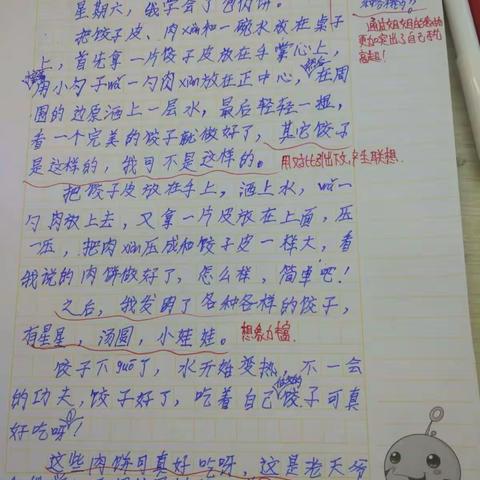 星期六，我学会了包肉饼。
把饺子皮、肉xiàn和一碗水放在桌子
上，首先拿一片饺子皮放在手掌心上，
用小勺子wā一勺肉xiàn放在正中心，在周
围的边原洒上一层水，最后轻轻一捏，
看一个完美的饺子就做好了，其它饺子
是这样的，我可不是这样的。
用对比引出下文，产生联想.
把饺子皮放在手上，洒上水，wā一
勺肉放上去，又拿一片皮放在上面，压
一压，把肉xiàn压成和饺子皮一样大，看
我说的肉饼做好了，怎么样，简单吧！
之后，我发明了各种各样的饺子，
有星星，汤圆，小娃娃。
想象力丰富
饺子下guō了，水开始变热，不一会
的功夫，饺子好了，吃着自己饺子可真
好吃呀！
这些肉饼可真好吃呀，这是老天
更加突出了自己